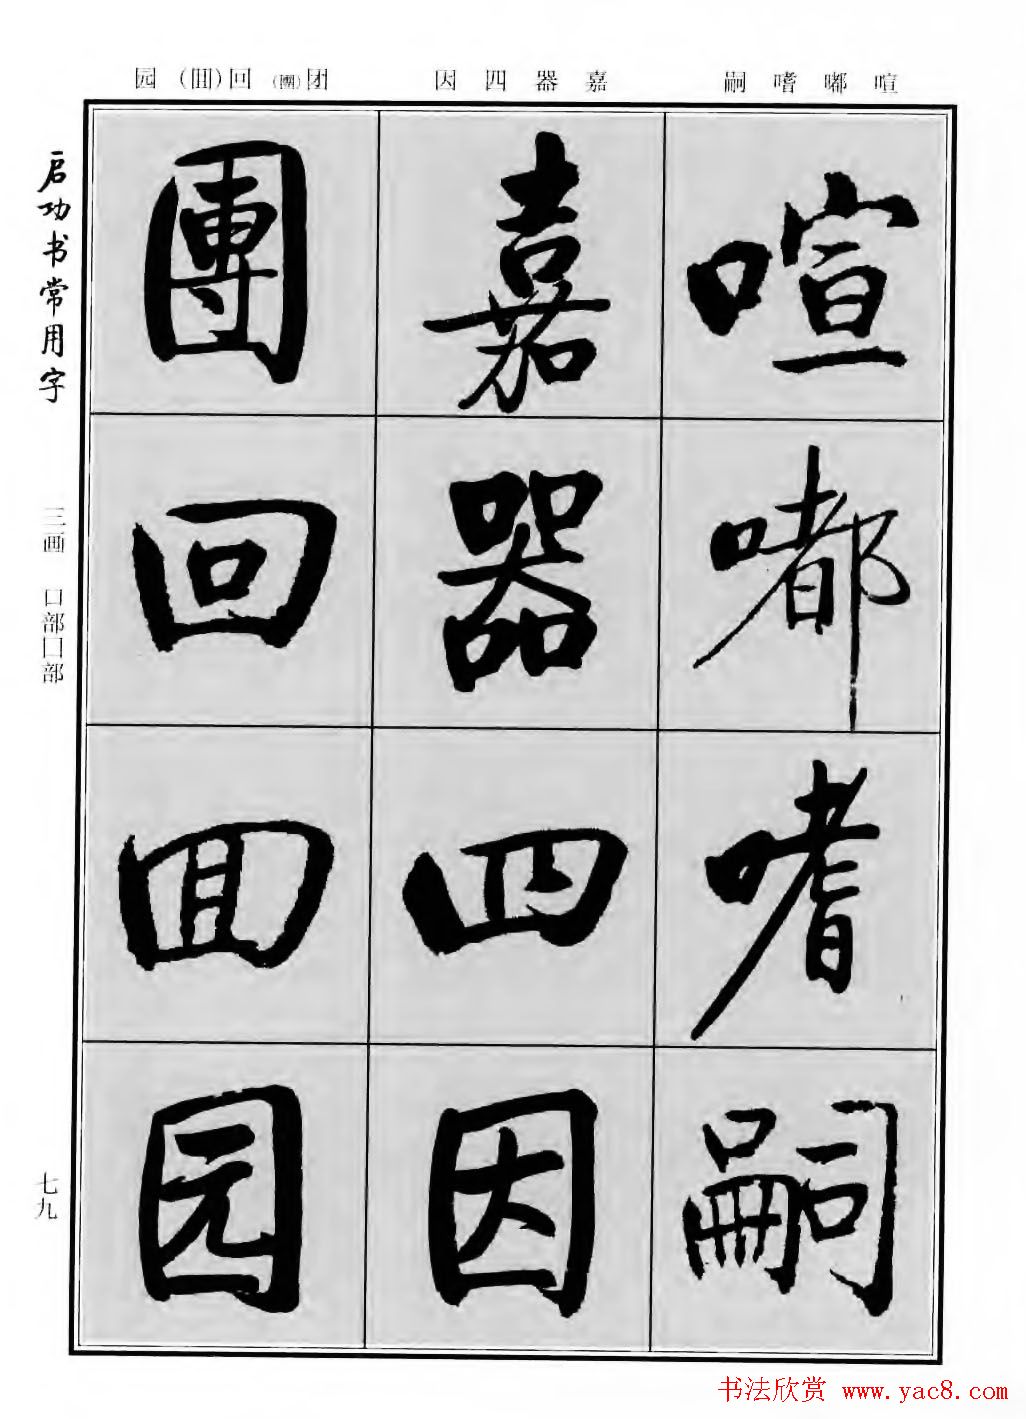 园 (囬) 回 (團) 团 因 四 器 嘉 嗣 嗜 嘟 喧
启功书常用字
三画 口部囗部
七九
喧 嘟 嗜 嗣
嘉 器 四 因
團 回 囬 园
书法欣赏 www.yac8.com